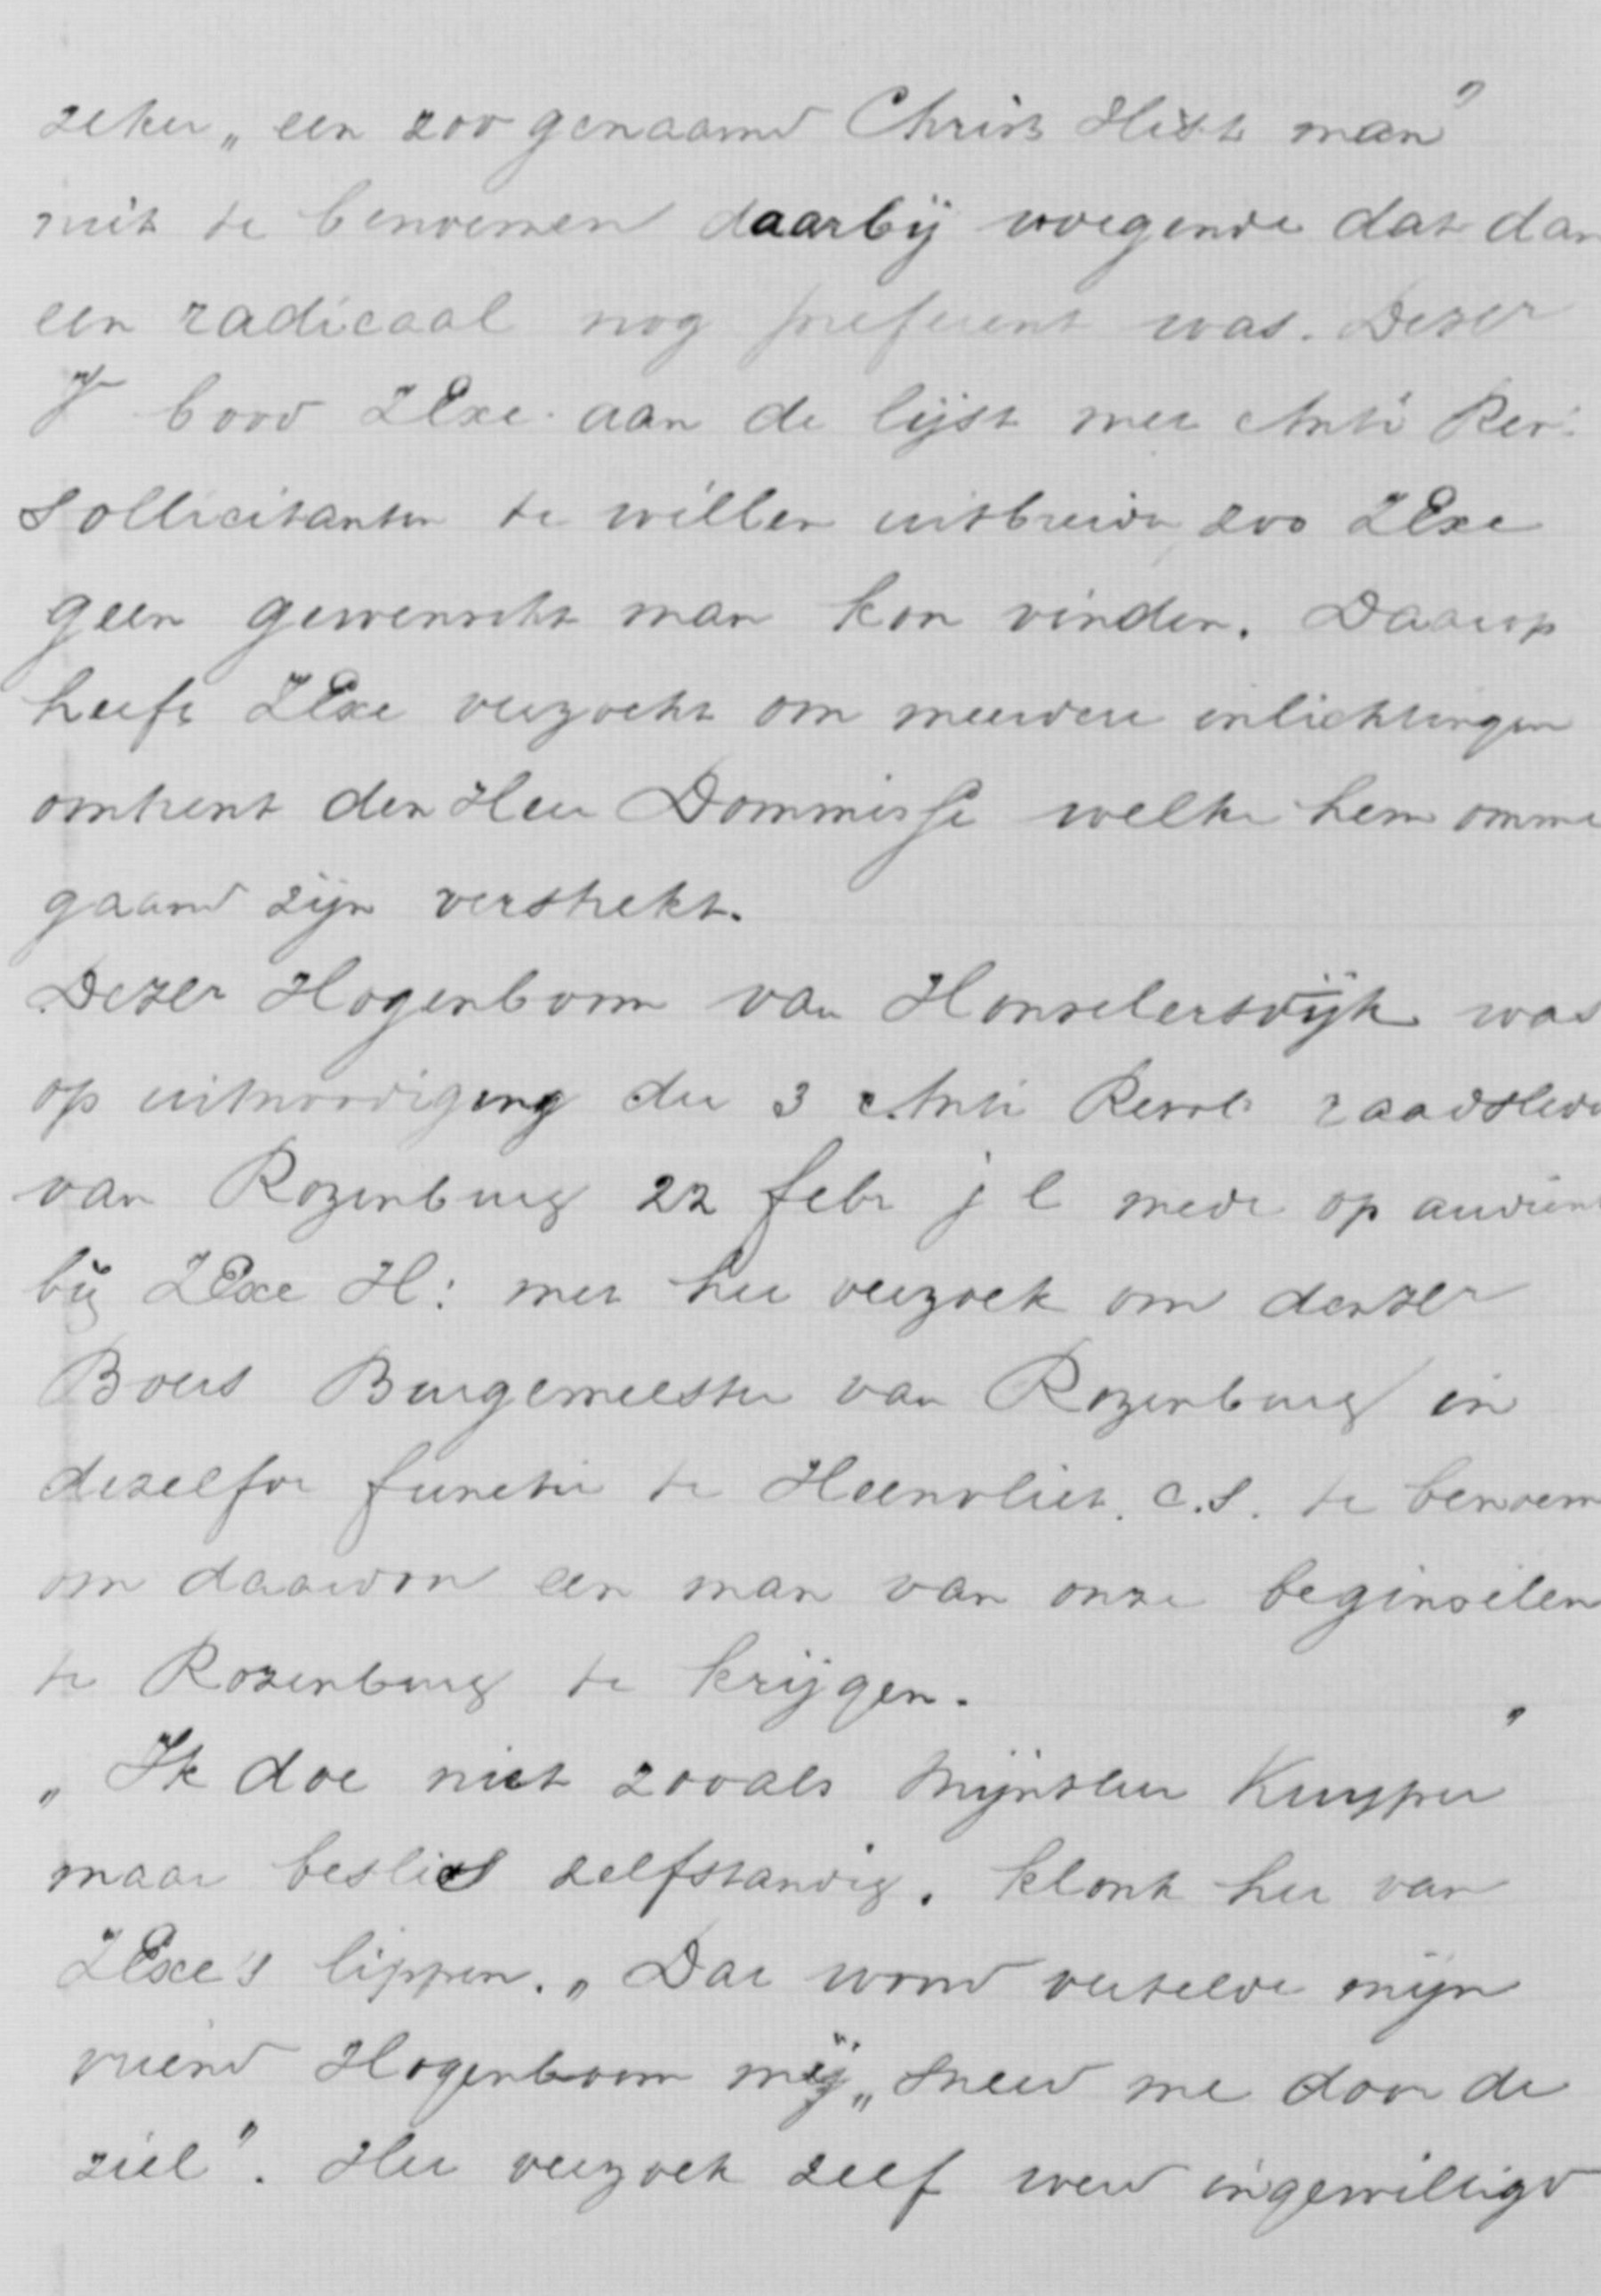 zeker „een zoo genaamd Christ Hist man”
niet te benoemen daarbij voegende dat dan
een radicaal nog preferent was. Dezer
V bood ZExc. aan de lijst met Anti Rev.
Sollicitanten te willen uitbreiden, zoo ZExc
geen gewenscht man kon vinden. Daarop
heeft ZExc verzocht om meerdere inlichtingen
omtrent den Heer Dommisse welke hem omme
gaand zijn verstrekt.
Dezer Hogenboom van Honselersdijk was
op uitnoodiging der 3 Anti Revol. raadsleden
van Rozenburg 22 febr j l mede op audient
bij ZExc H: met het verzoek om denzer
Boers Burgemeester van Rozenburg in
dezelfde functie te Heenvliet. c.s. te benoem
om daardoor een man van onze beginselen
te Rozenburg te krijgen.
„Ik doe niet zooals Mijnheer Kuyper”
maar beslist zelfstandig. klonk het van
ZExc's lippen. „Dat woord vertelde mijn
vriend Hogenboom mij „sneed me door de
ziel”. Het verzoek zelf werd ingewilligd